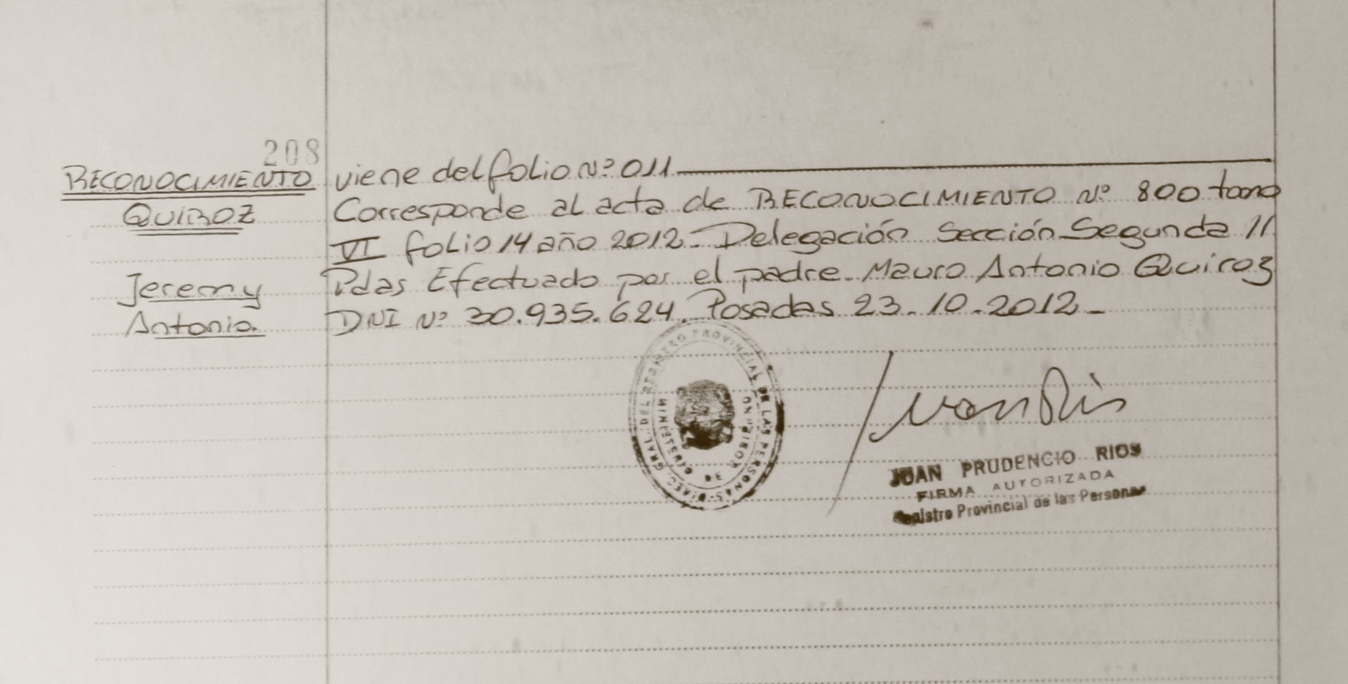 208
RECONOCIMIENTO viene del folio Nº 011
QUIROZ Corresponde al acta de RECONOCIMIENTO Nº 800 tomo
VI folio 14 año 2012 - Delegación Sección Segunda //
Jeremy Pdas Efectuado por el padre - Mauro Antonio Quiroz
Antonio. DNI Nº 30.935.624. Posadas 23.10.2012 -
GRAL. DEL REGISTRO PROVINCIAL DE LAS PERSONAS
MINISTERIO DE
JUAN PRUDENCIO RIOS
FIRMA AUTORIZADA
Registro Provincial de las Personas